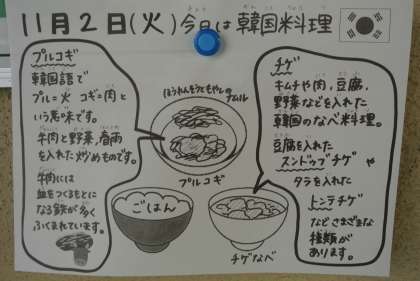 11月2日(火)今日は韓国料理
きょう
かんこくりょうり
プルコギ
韓国語で
プル=火 コギ=肉と
いう意味です。
牛肉と野菜、春雨
を入れた炒めものです。
牛肉には
血をつくるもとに
なる鉄が多く
ふくまれています。
ほうれんそうともやしのナムル
プルコギ
ごはん
チゲなべ
チゲ
キムチや肉、豆腐、
野菜などを入れた
韓国のなべ料理。
豆腐を入れた
スンドゥブチゲや
タラを入れた
トンテチゲ
などさまざまな
種類が
あります。